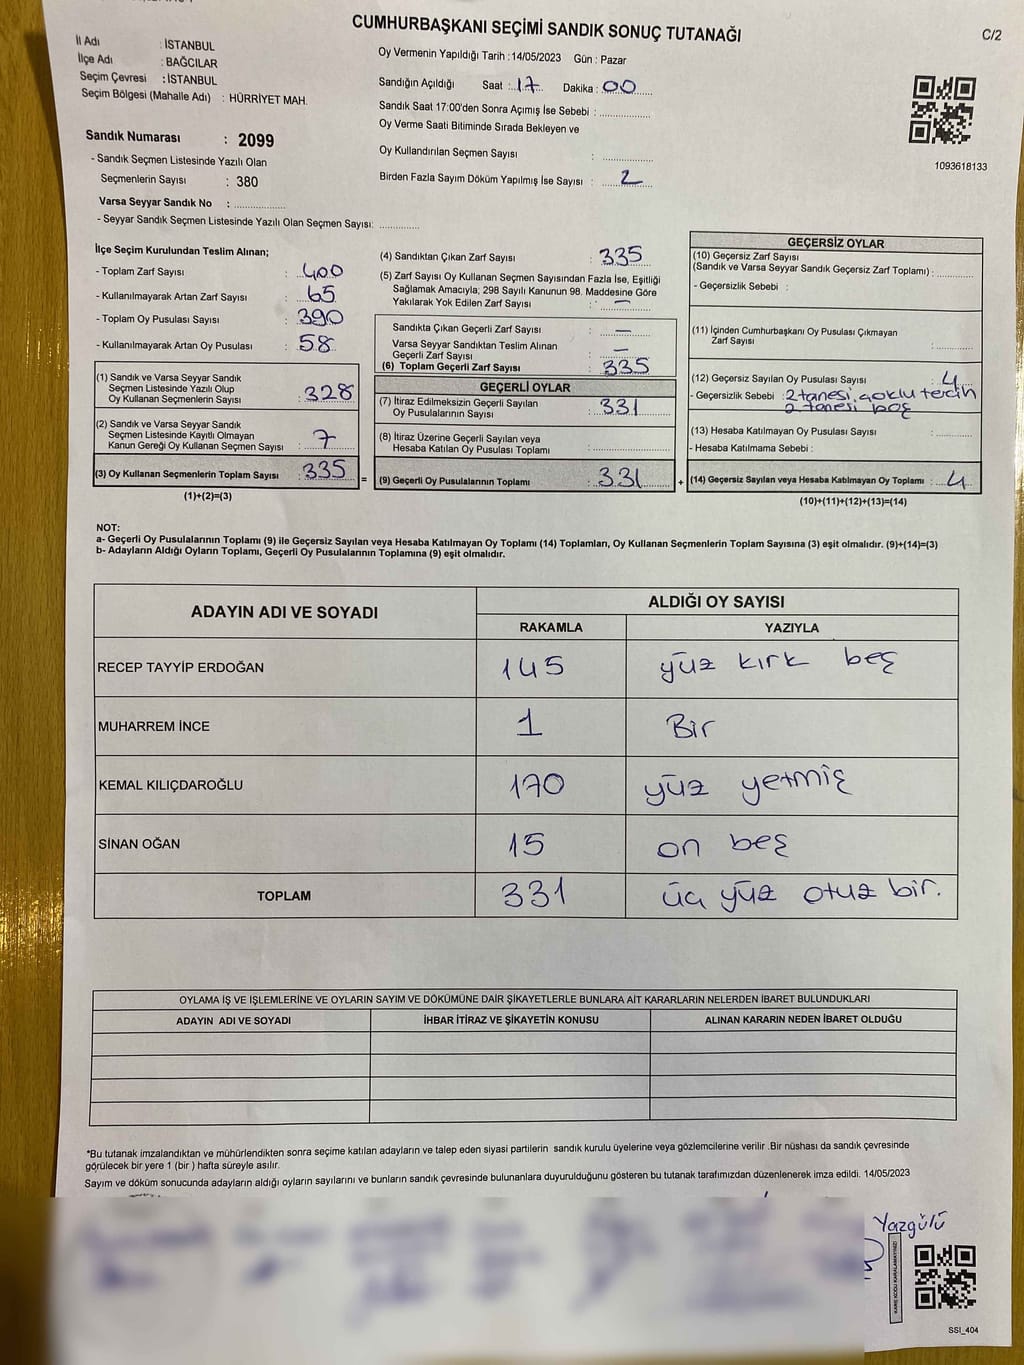 CUMHURBAŞKANI SEÇİMİ SANDIK SONUÇ TUTANAĞI
C/2
İl Adı : İSTANBUL
İlçe Adı : BAĞCILAR
Seçim Çevresi : İSTANBUL
Seçim Bölgesi (Mahalle Adı) : HÜRRİYET MAH.
Sandık Numarası : 2099
- Sandık Seçmen Listesinde Yazılı Olan
Seçmenlerin Sayısı : 380
Varsa Seyyar Sandık No :
- Seyyar Sandık Seçmen Listesinde Yazılı Olan Seçmen Sayısı:
Oy Vermenin Yapıldığı Tarih : 14/05/2023 Gün : Pazar
Sandığın Açıldığı Saat : 17 Dakika : 00
Sandık Saat 17:00'den Sonra Açımış İse Sebebi :
Oy Verme Saati Bitiminde Sırada Bekleyen ve
Oy Kullandırılan Seçmen Sayısı :
Birden Fazla Sayım Döküm Yapılmış İse Sayısı : 2
1093618133
İlçe Seçim Kurulundan Teslim Alınan;
- Toplam Zarf Sayısı : 400
- Kullanılmayarak Artan Zarf Sayısı : 65
- Toplam Oy Pusulası Sayısı : 390
- Kullanılmayarak Artan Oy Pusulası : 58
(1) Sandık ve Varsa Seyyar Sandık
Seçmen Listesinde Yazılı Olup
Oy Kullanan Seçmenlerin Sayısı : 328
(2) Sandık ve Varsa Seyyar Sandık
Seçmen Listesinde Kayıtlı Olmayan
Kanun Gereği Oy Kullanan Seçmen Sayısı : 7
(3) Oy Kullanan Seçmenlerin Toplam Sayısı : 335 =
(1)+(2)=(3)
(4) Sandıktan Çıkan Zarf Sayısı : 335
(5) Zarf Sayısı Oy Kullanan Seçmen Sayısından Fazla İse, Eşitliği
Sağlamak Amacıyla; 298 Sayılı Kanunun 98. Maddesine Göre
Yakılarak Yok Edilen Zarf Sayısı : —
Sandıkta Çıkan Geçerli Zarf Sayısı : —
Varsa Seyyar Sandıktan Teslim Alınan
Geçerli Zarf Sayısı : —
(6) Toplam Geçerli Zarf Sayısı : 335
GEÇERLİ OYLAR
(7) İtiraz Edilmeksizin Geçerli Sayılan
Oy Pusulalarının Sayısı : 331
(8) İtiraz Üzerine Geçerli Sayılan veya
Hesaba Katılan Oy Pusulası Toplamı :
(9) Geçerli Oy Pusulalarının Toplamı : 331 +
GEÇERSİZ OYLAR
(10) Geçersiz Zarf Sayısı
(Sandık ve Varsa Seyyar Sandık Geçersiz Zarf Toplamı) :
- Geçersizlik Sebebi :
(11) İçinden Cumhurbaşkanı Oy Pusulası Çıkmayan
Zarf Sayısı :
(12) Geçersiz Sayılan Oy Pusulası Sayısı : 4
- Geçersizlik Sebebi : 2 tanesi çoklu tercih
2 tanesi boş
(13) Hesaba Katılmayan Oy Pusulası Sayısı :
- Hesaba Katılmama Sebebi :
(14) Geçersiz Sayılan veya Hesaba Katılmayan Oy Toplamı : 4
(10)+(11)+(12)+(13)=(14)
NOT:
a- Geçerli Oy Pusulalarının Toplamı (9) ile Geçersiz Sayılan veya Hesaba Katılmayan Oy Toplamı (14) Toplamları, Oy Kullanan Seçmenlerin Toplam Sayısına (3) eşit olmalıdır. (9)+(14)=(3)
b- Adayların Aldığı Oyların Toplamı, Geçerli Oy Pusulalarının Toplamına (9) eşit olmalıdır.
ADAYIN ADI VE SOYADI
ALDIĞI OY SAYISI
RAKAMLA YAZIYLA
RECEP TAYYİP ERDOĞAN 145 yüz kırk beş
MUHARREM İNCE 1 Bir
KEMAL KILIÇDAROĞLU 170 yüz yetmiş
SİNAN OĞAN 15 on beş
TOPLAM 331 üç yüz otuz bir.
OYLAMA İŞ VE İŞLEMLERİNE VE OYLARIN SAYIM VE DÖKÜMÜNE DAİR ŞİKAYETLERLE BUNLARA AİT KARARLARIN NELERDEN İBARET BULUNDUKLARI
ADAYIN ADI VE SOYADI İHBAR İTİRAZ VE ŞİKAYETİN KONUSU ALINAN KARARIN NEDEN İBARET OLDUĞU
*Bu tutanak imzalandıktan ve mühürlendikten sonra seçime katılan adayların ve talep eden siyasi partilerin sandık kurulu üyelerine veya gözlemcilerine verilir .Bir nüshası da sandık çevresinde
görülecek bir yere 1 (bir ) hafta süreyle asılır.
Sayım ve döküm sonucunda adayların aldığı oyların sayılarını ve bunların sandık çevresinde bulunanlara duyurulduğunu gösteren bu tutanak tarafımızdan düzenlenerek imza edildi. 14/05/2023
Yazgülü
SSI_404